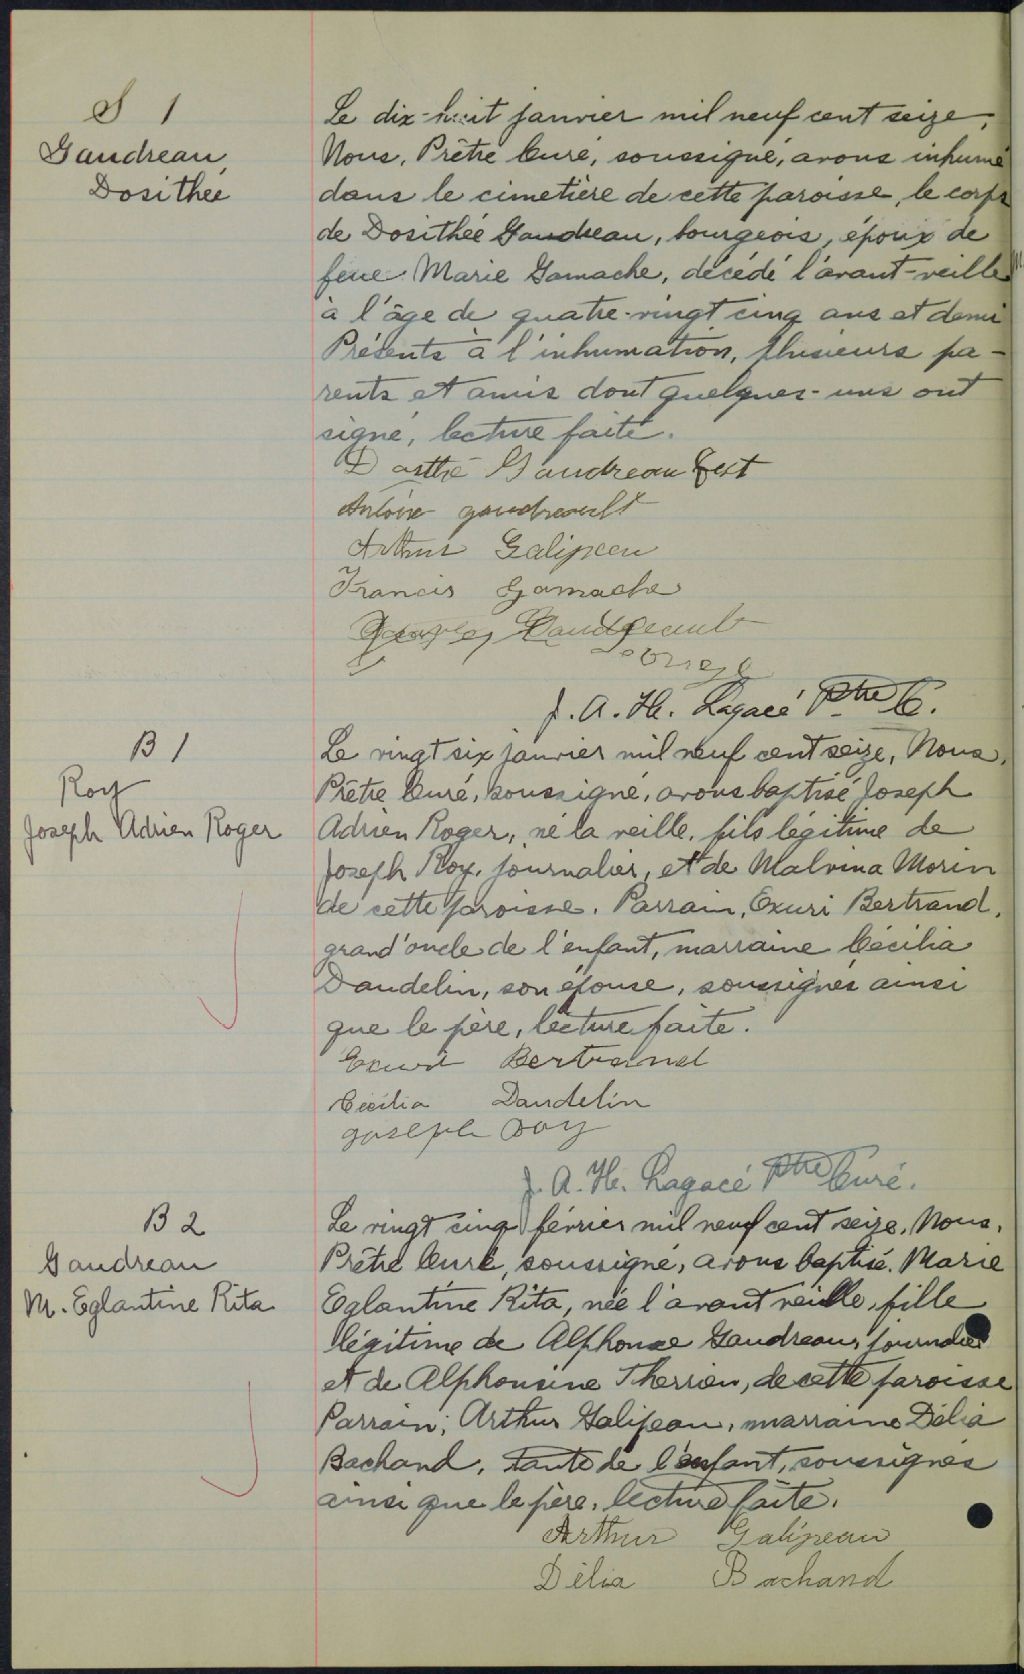 S 1
Gaudreau
Dosithée
Le dix-huit janvier mil neuf cent seize,
Nous, Prêtre Curé, soussigné, avons inhumé
dans le cimetière de cette paroisse, le corps
de Dosithée Gaudreau, bourgeois, époux de
feue Marie Gamache, décédé l'avant-veille
à l'âge de quatre-vingt cinq ans et demi
Présents à l'inhumation, plusieurs pa-
rents et amis dont quelques-uns ont
signé, lecture faite.
Gaudreau
Antoine gaudreault
Arthur Galipeau
Francis Gamache
Gaudreault
J. A. H. Lagacé Ptre C.
B 1
Roy
Joseph Adrien Roger
Le vingt six janvier mil neuf cent seize, Nous,
Prêtre Curé, soussigné, avons baptisé Joseph
Adrien Roger, né la veille, fils légitime de
Joseph Roy, journalier, et de Malvina Morin
de cette paroisse. Parrain, Exuri Bertrand,
grand'oncle de l'enfant, marraine Cécilia
Daudelin, son épouse, soussignés ainsi
que le père, lecture faite.
Exuri Bertrand
Cécilia Daudelin
joseph roy
J. A. H. Lagacé Ptre Curé.
B 2
Gaudreau
M. Eglantine Rita
Le vingt cinq février mil neuf cent seize, Nous,
Prêtre Curé, soussigné, avons baptisé Marie
Eglantine Rita, née l'avant veille, fille
légitime de Alphonse Gaudreau, journalier
et de Alphonsine Therrien, de cette paroisse
Parrain, Arthur Galipeau, marraine Délia
Bachand, tante de l'enfant, soussignés
ainsi que le père, lecture faite.
Arthur Galipeau
Délia Bachand